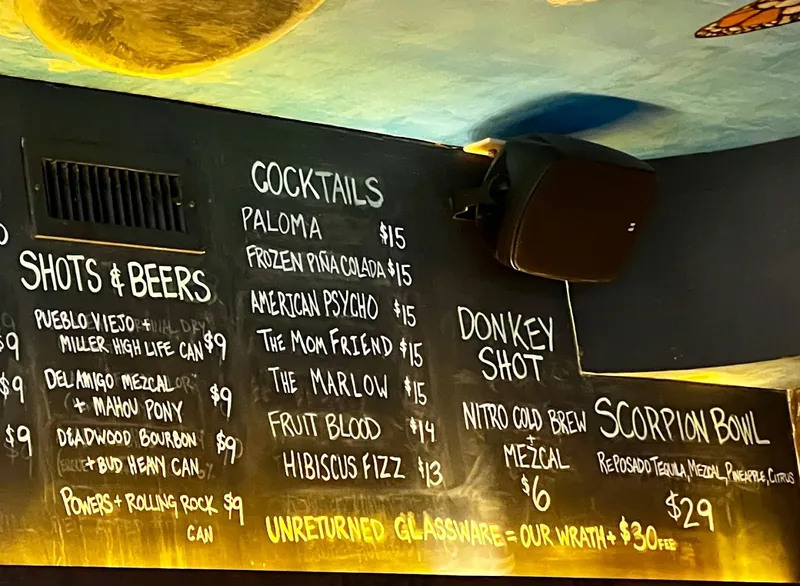 $9
$9
$9
SHOTS & BEERS
PUEBLO VIEJO +
MILLER HIGH LIFE CAN $9
DEL AMIGO MEZCAL
+ MAHOU PONY $9
DEADWOOD BOURBON $9
+ BUD HEAVY CAN
POWERS + ROLLING ROCK $9
CAN
COCKTAILS
PALOMA $15
FROZEN PIÑA COLADA $15
AMERICAN PSYCHO $15
THE MOM FRIEND $15
THE MARLOW $15
FRUIT BLOOD $14
HIBISCUS FIZZ $13
DONKEY
SHOT
NITRO COLD BREW
+
MEZCAL
$6
SCORPION BOWL
REPOSADO TEQUILA, MEZCAL, PINEAPPLE, CITRUS
$29
UNRETURNED GLASSWARE = OUR WRATH + $30 FEE